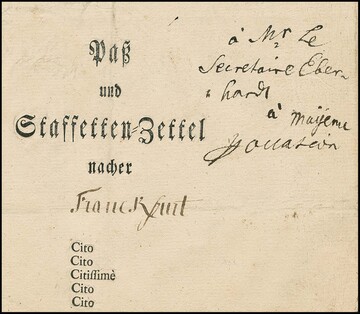 Paß
und
Staffetten-Zettel
nacher
Franckfurt
Cito
Cito
Citissimè
Cito
Cito
à Mr Le
Secretaire Eber-
hardt
à